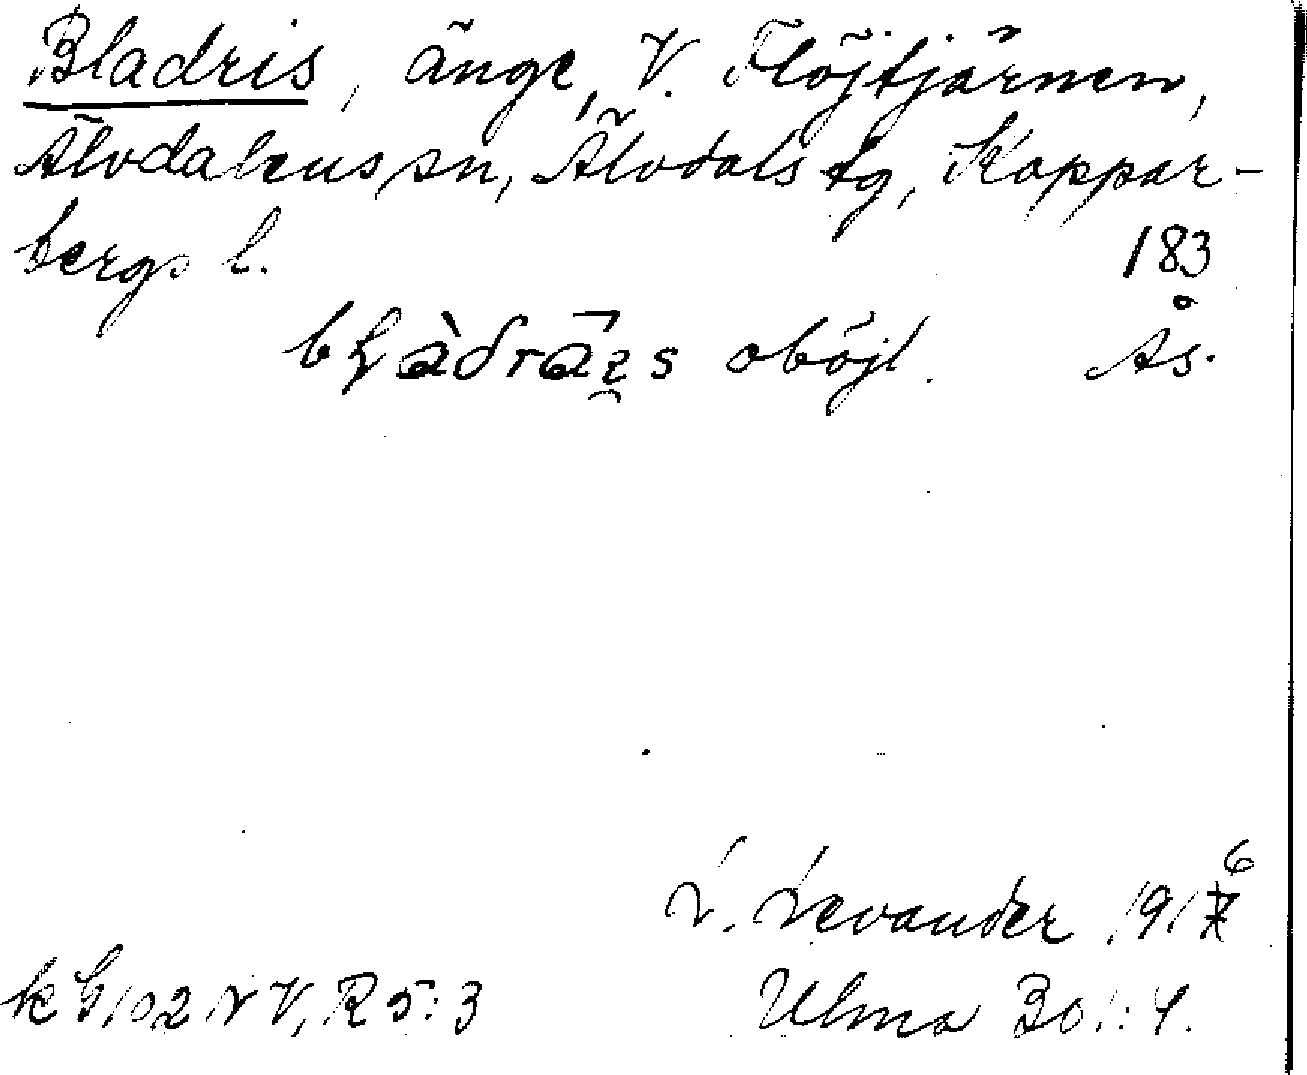 Bladris, änge, V. Flöjtjärnen,
Älvdalens sn, Älvdals tg, Koppar-
bergs l. 183
oböjl. Ås.
L. Levander 1916
kbl 102 NV, R 5:3 Ulma 30:4.